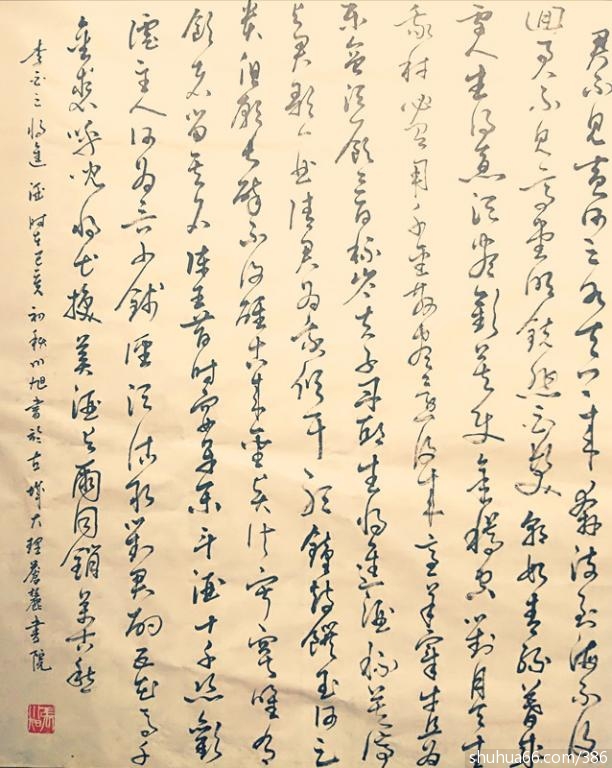 君不見黃河之水天上來奔流到海不復
迴君不見高堂明鏡悲白髮朝如青絲暮成
雪人生得意須盡歡莫使金樽空對月天生
我材必有用千金散盡還復來烹羊宰牛且為
樂會須一飲三百杯岑夫子丹丘生將進酒杯莫停
與君歌一曲請君為我傾耳聽鐘鼓饌玉何足
貴但願長醉不復醒古來聖賢皆寂寞唯有
飲者留其名陳王昔時宴平樂斗酒十千恣歡
謔主人何為言少錢徑須沽取對君酌五花馬千
金裘呼兒將出換美酒與爾同銷萬古愁
李白之將進酒 時在己亥初秋川旭書於古城大理蒼麓書院
shuhua66.com/386